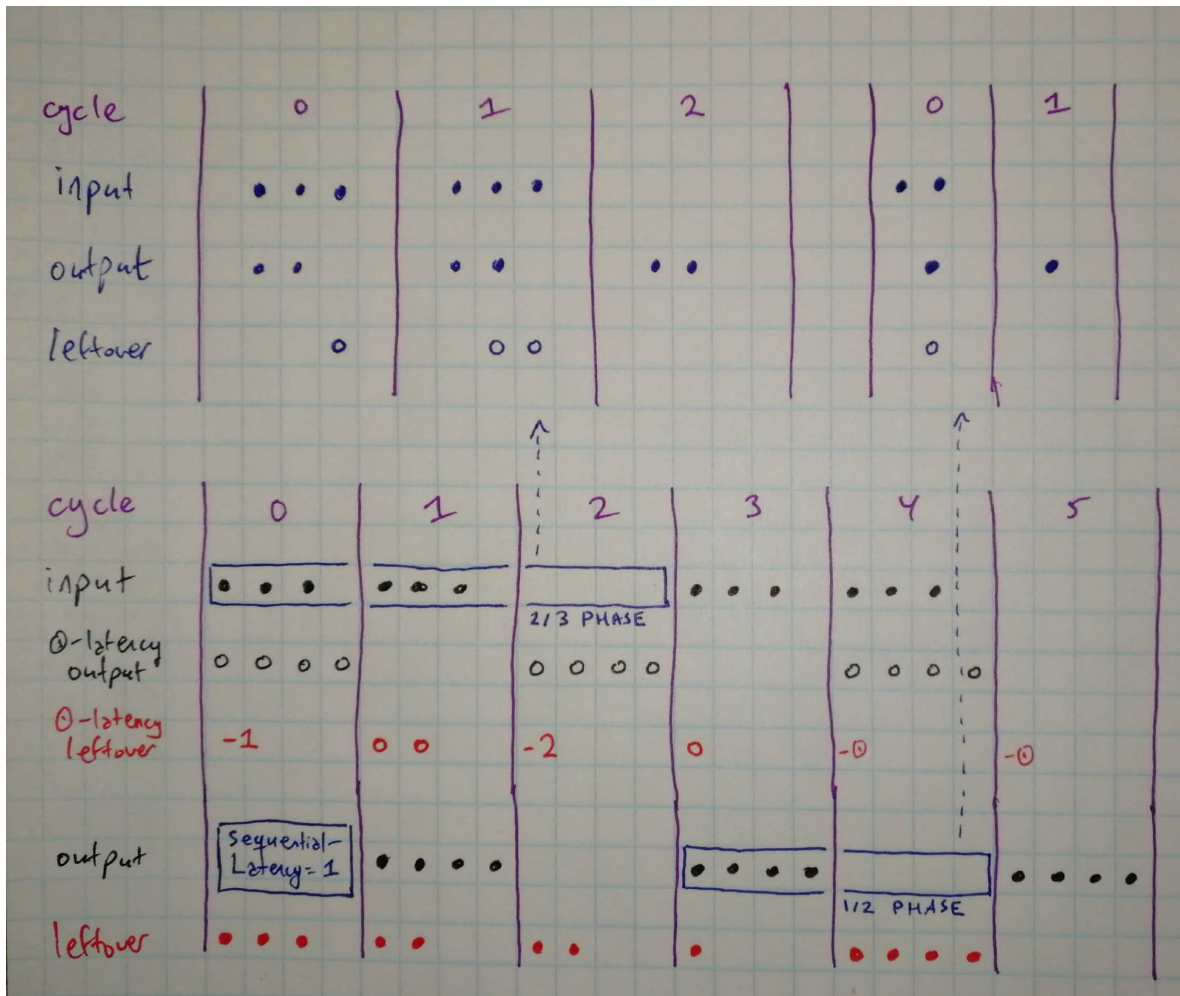 cycle 0 1 2 0 1
input
output
leftover
cycle 0 1 2 3 4 5
input
2/3 PHASE
0-latency
output
0-latency
leftover -1 -2 -0 -0
Sequential-
Latency= 1
output
1/2 PHASE
leftover